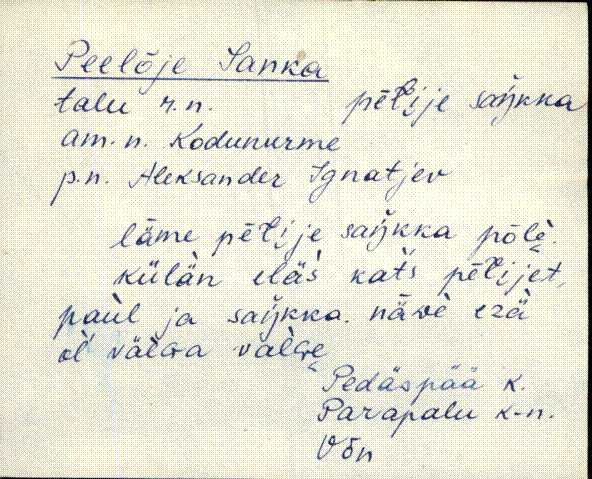 Peelõje Sanka
talu r.n. pēĺije saŋkka
am. n. Kodunurme
p.n. Aleksander Ignatjev
läme pēĺije saŋkka pōlè.
külàn eläs̀ kat́s pēĺijet,
paùl ja saŋkka. näwè ezä
oĺ välGa valGe
Pedäspää k.
Parapalu k-n.
Võn